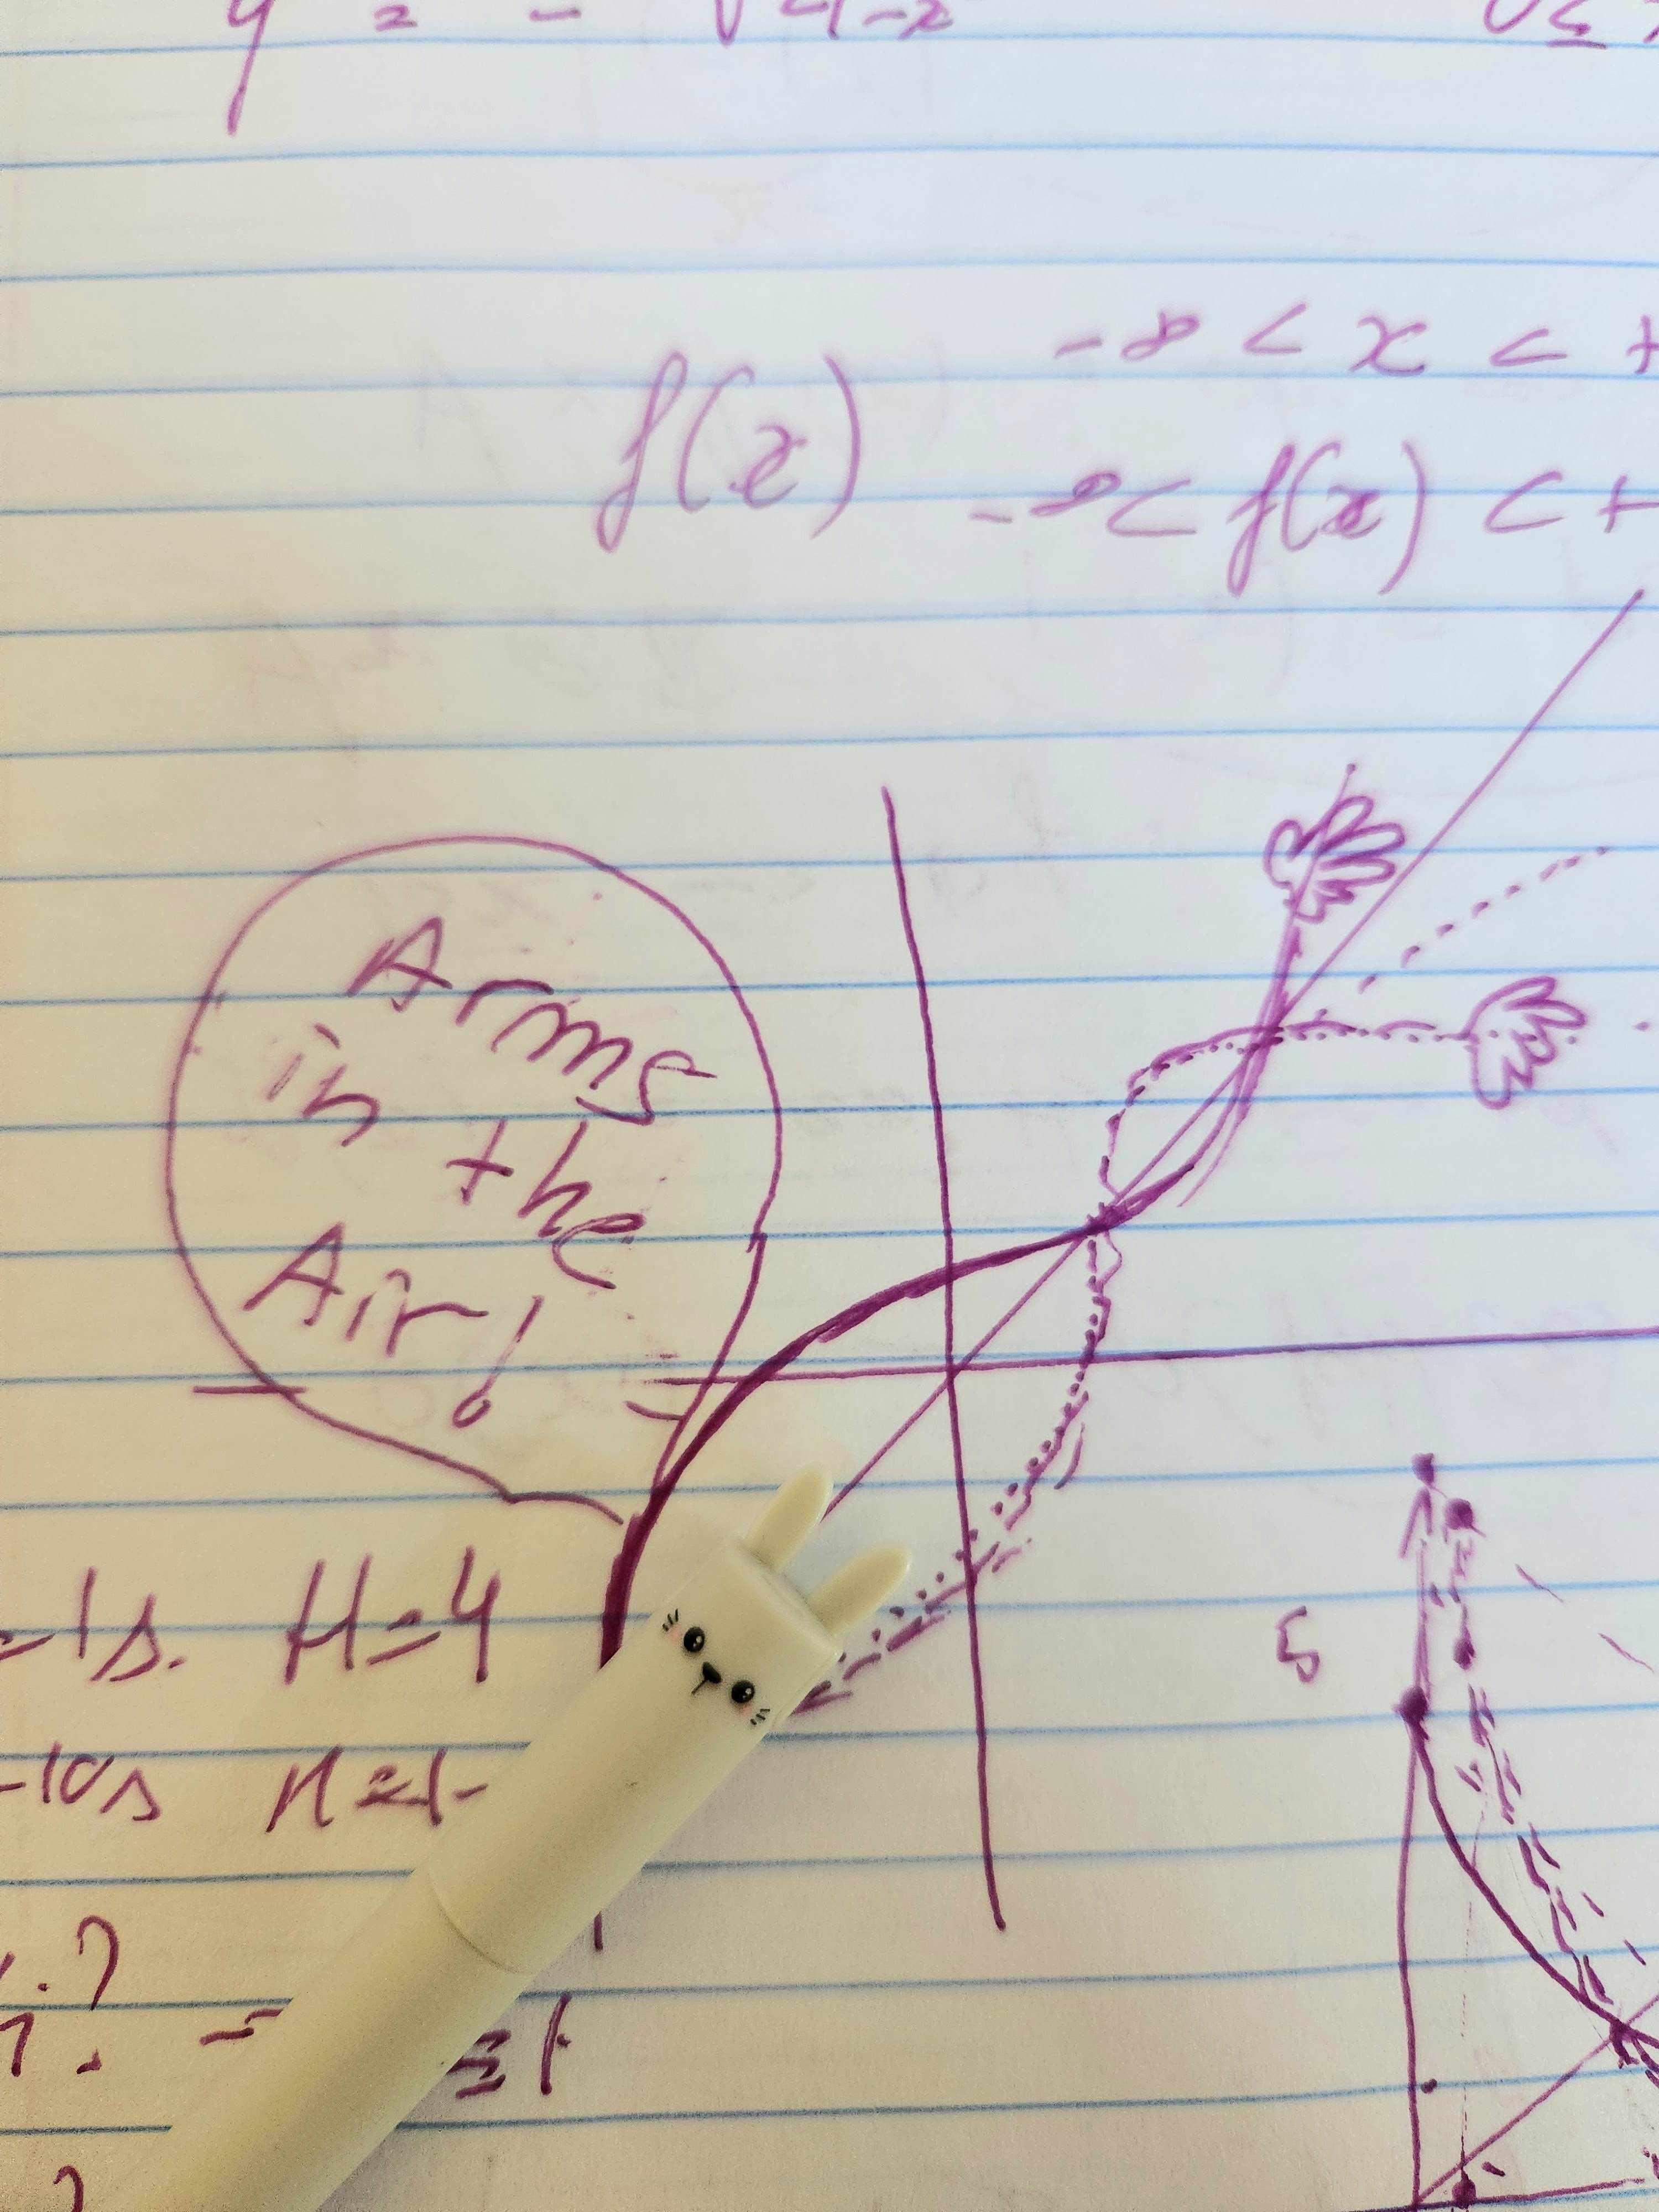 y = - √4-x
0 ≤
f(x) -∞ < x < +
-∞ < f(x) < +
Arms
in the
Air!
=1s. H=4
5
-10s
?
=
?